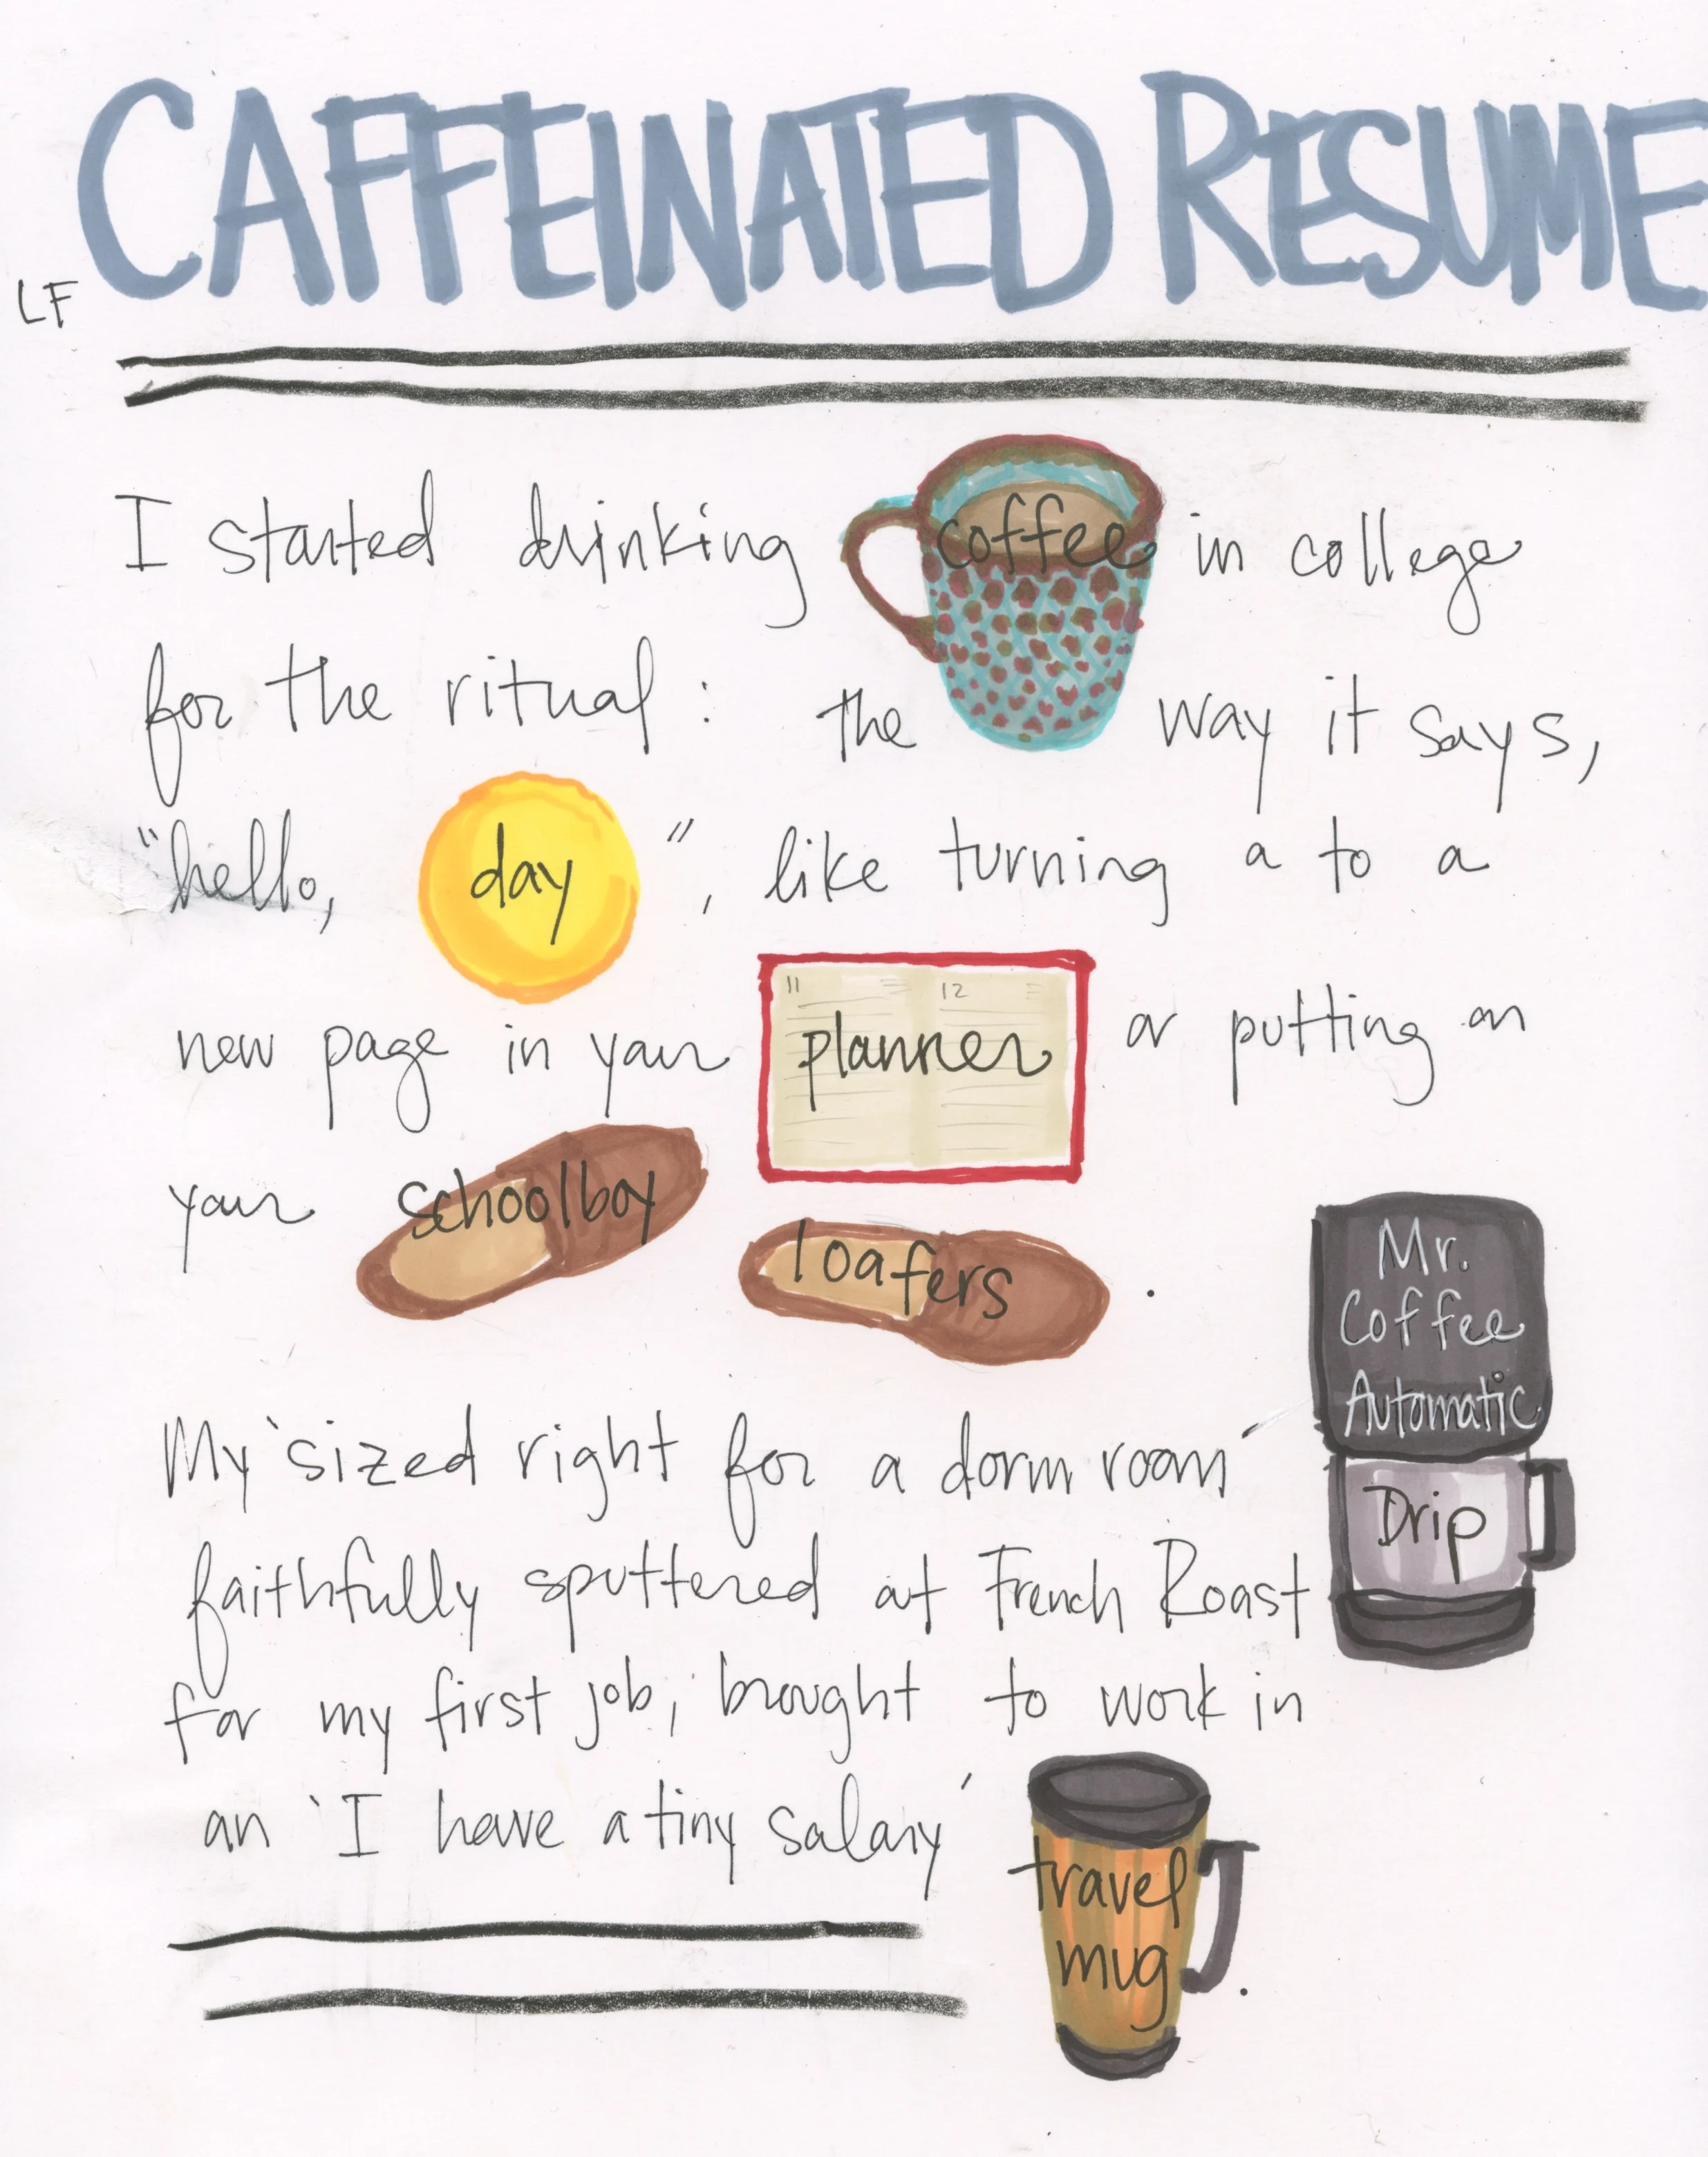 CAFFEINATED RESUME
LF
I started drinking coffee in college
for the ritual : the way it says,
"hello, day", like turning a to a
11 12
new page in your planner or putting on
your schoolboy loafers .
Mr.
Coffee
Automatic
Drip
My 'sized right for a dorm room'
faithfully sputtered at French Roast
for my first job; brought to work in
an 'I have a tiny salary'
travel
mug.